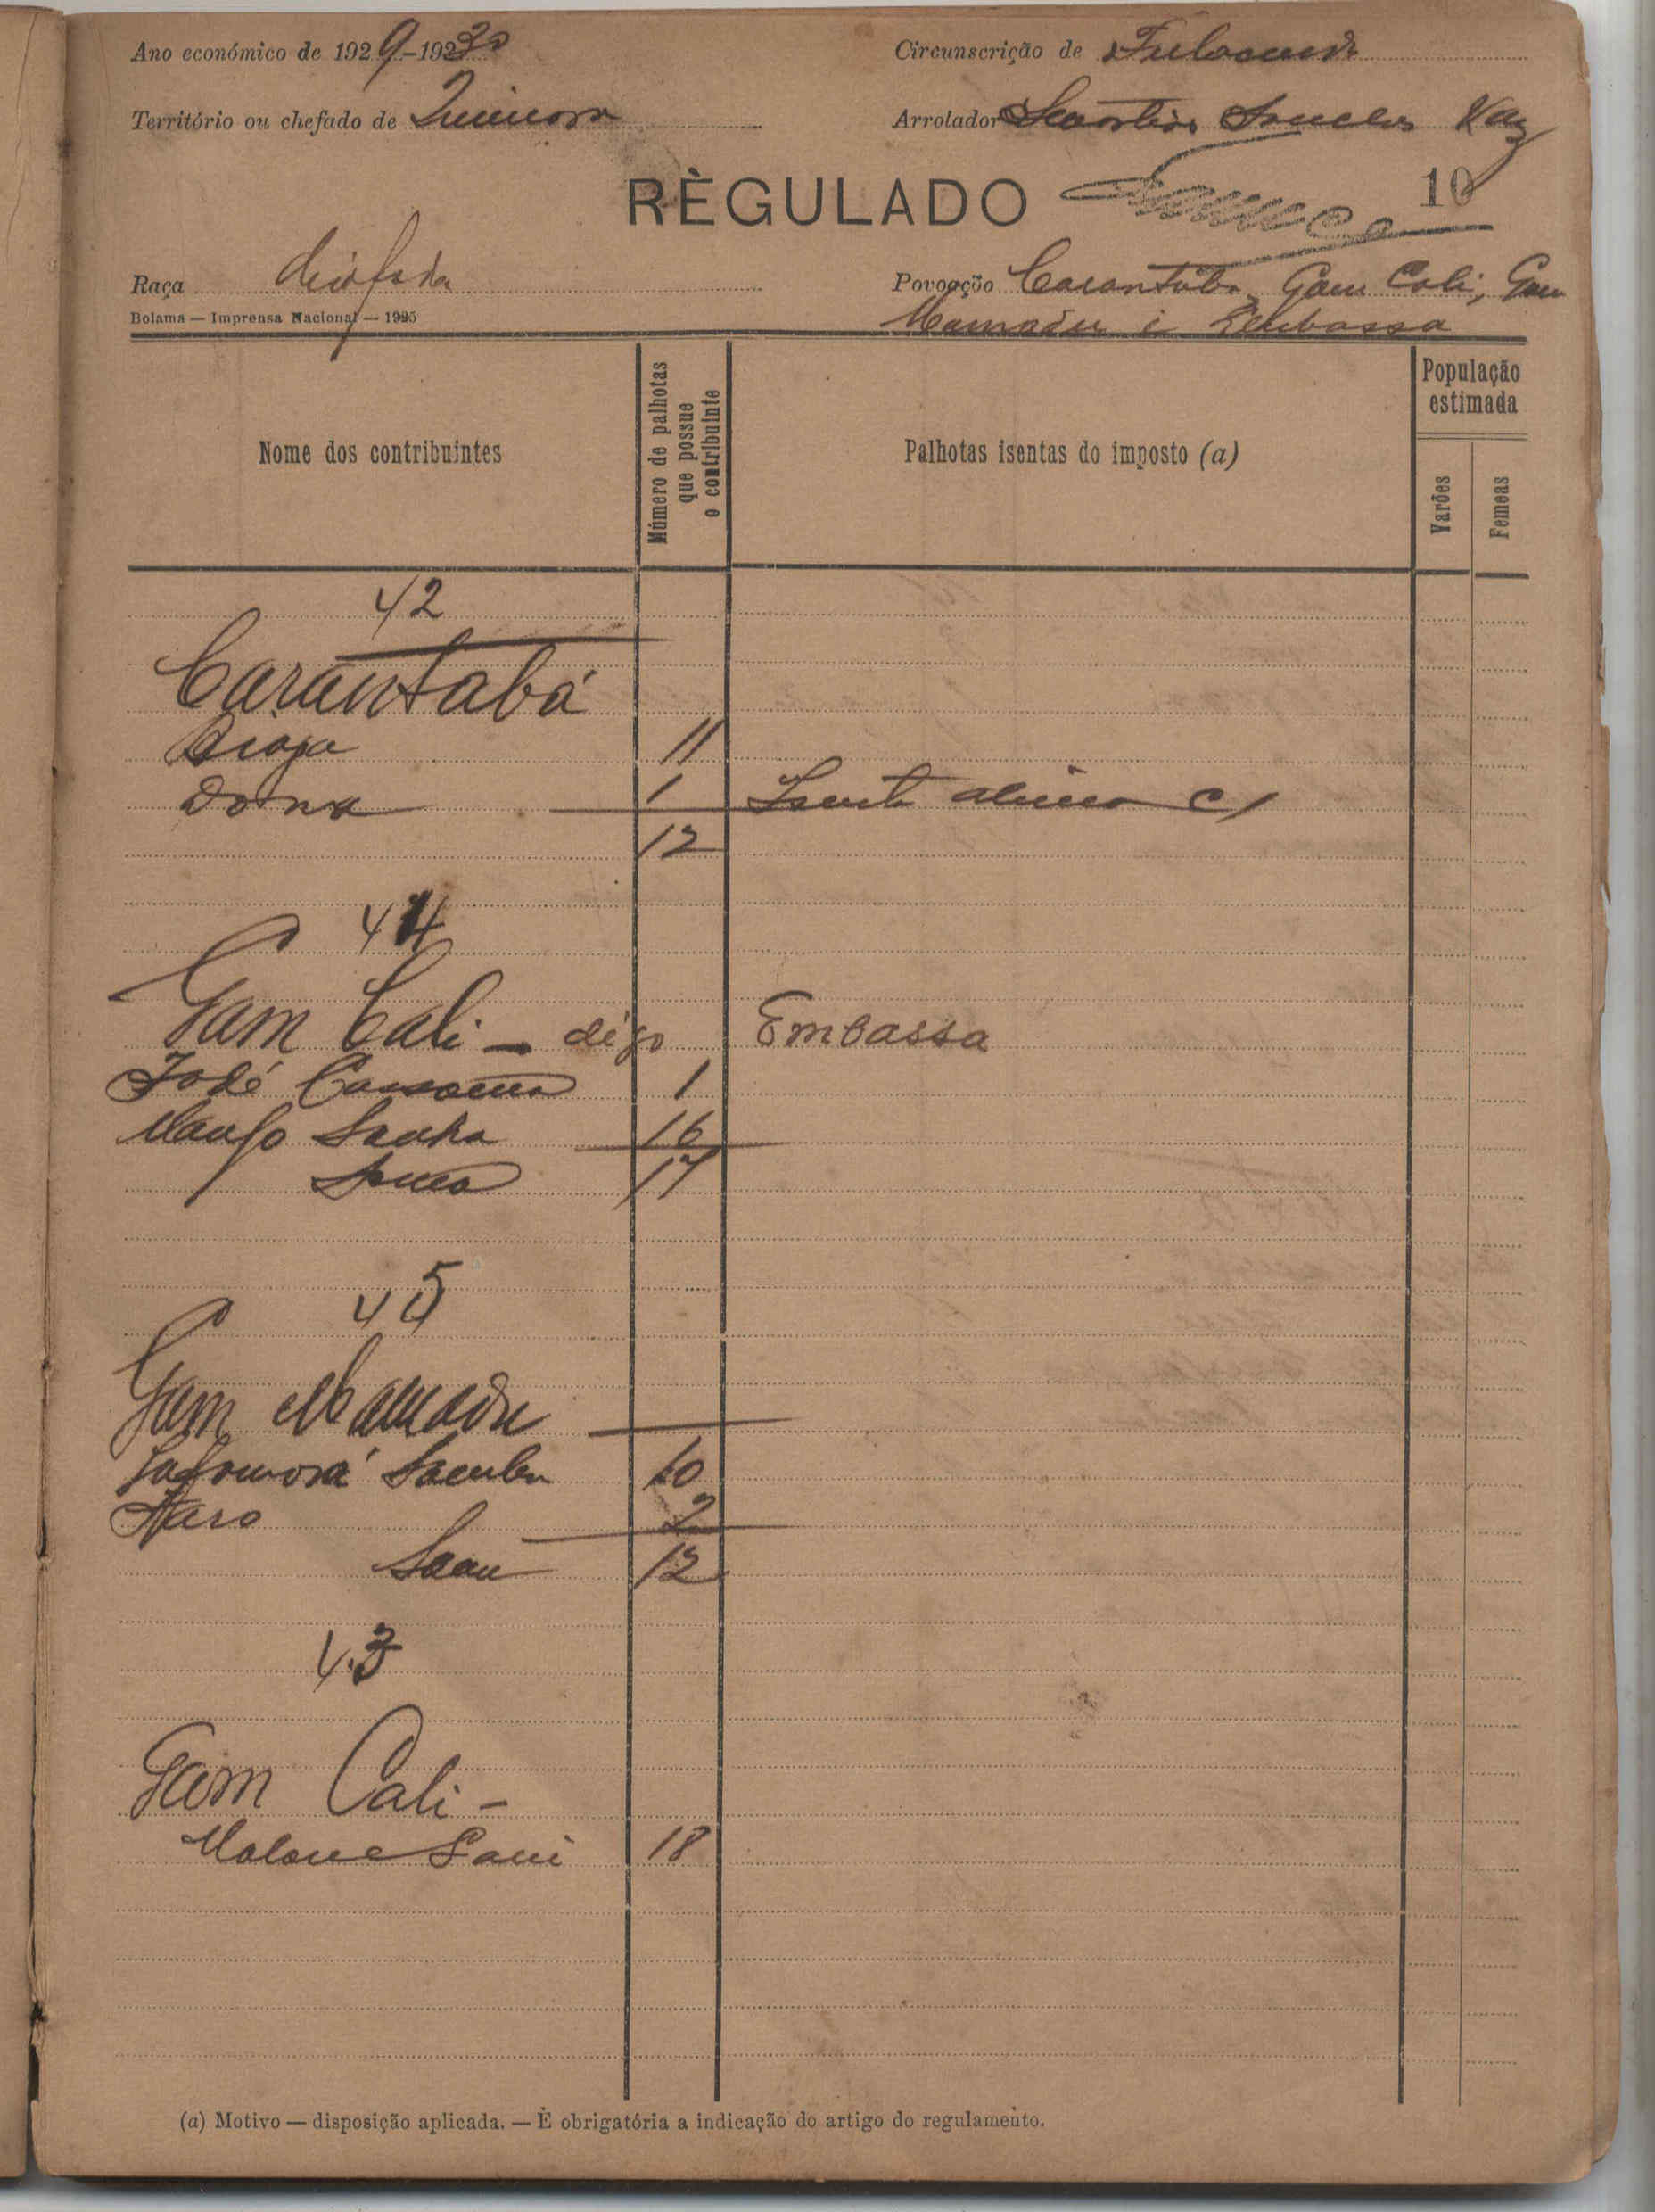 Ano económico de 1929-1930
Circunscrição de Fulacunda
Território ou chefado de Quinara
Arrolador Sanches Vaz
RÈGULADO
10
Raça Biafada
Povoação Carantabá, Gam Cali, Gam
Mamadu e Embassa
Bolama — Imprensa Nacional — 1925
Nome dos contribuintes
Número de palhotas
que possue
o contribuinte
Palhotas isentas do imposto (a)
População
estimada
Varões
Femeas
42
Carantabá
Braga 11
Dona 1 c/
12
44
Gam Cali - digo Embassa
José Cassama 1
Sanha 16
Soma 17
45
Gam Mamadu
10
2
Soma 12
43
Gam Cali -
18
(a) Motivo — disposição aplicada. — È obrigatória a indicação do artigo do regulamento.